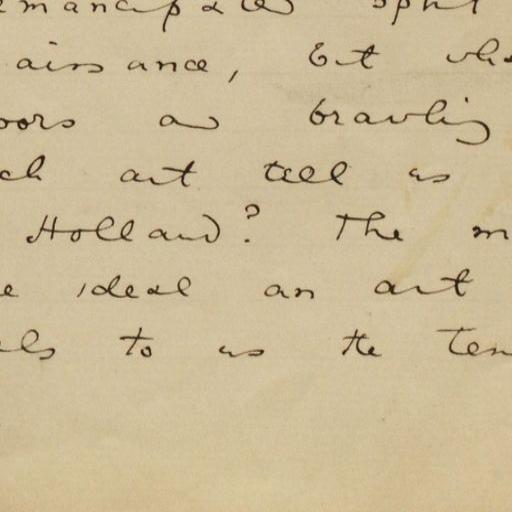 emancipated spirit
aissance, but who
oors as brawling
ch art tell us
Holland? The m
e ideal an art
als to us the tem